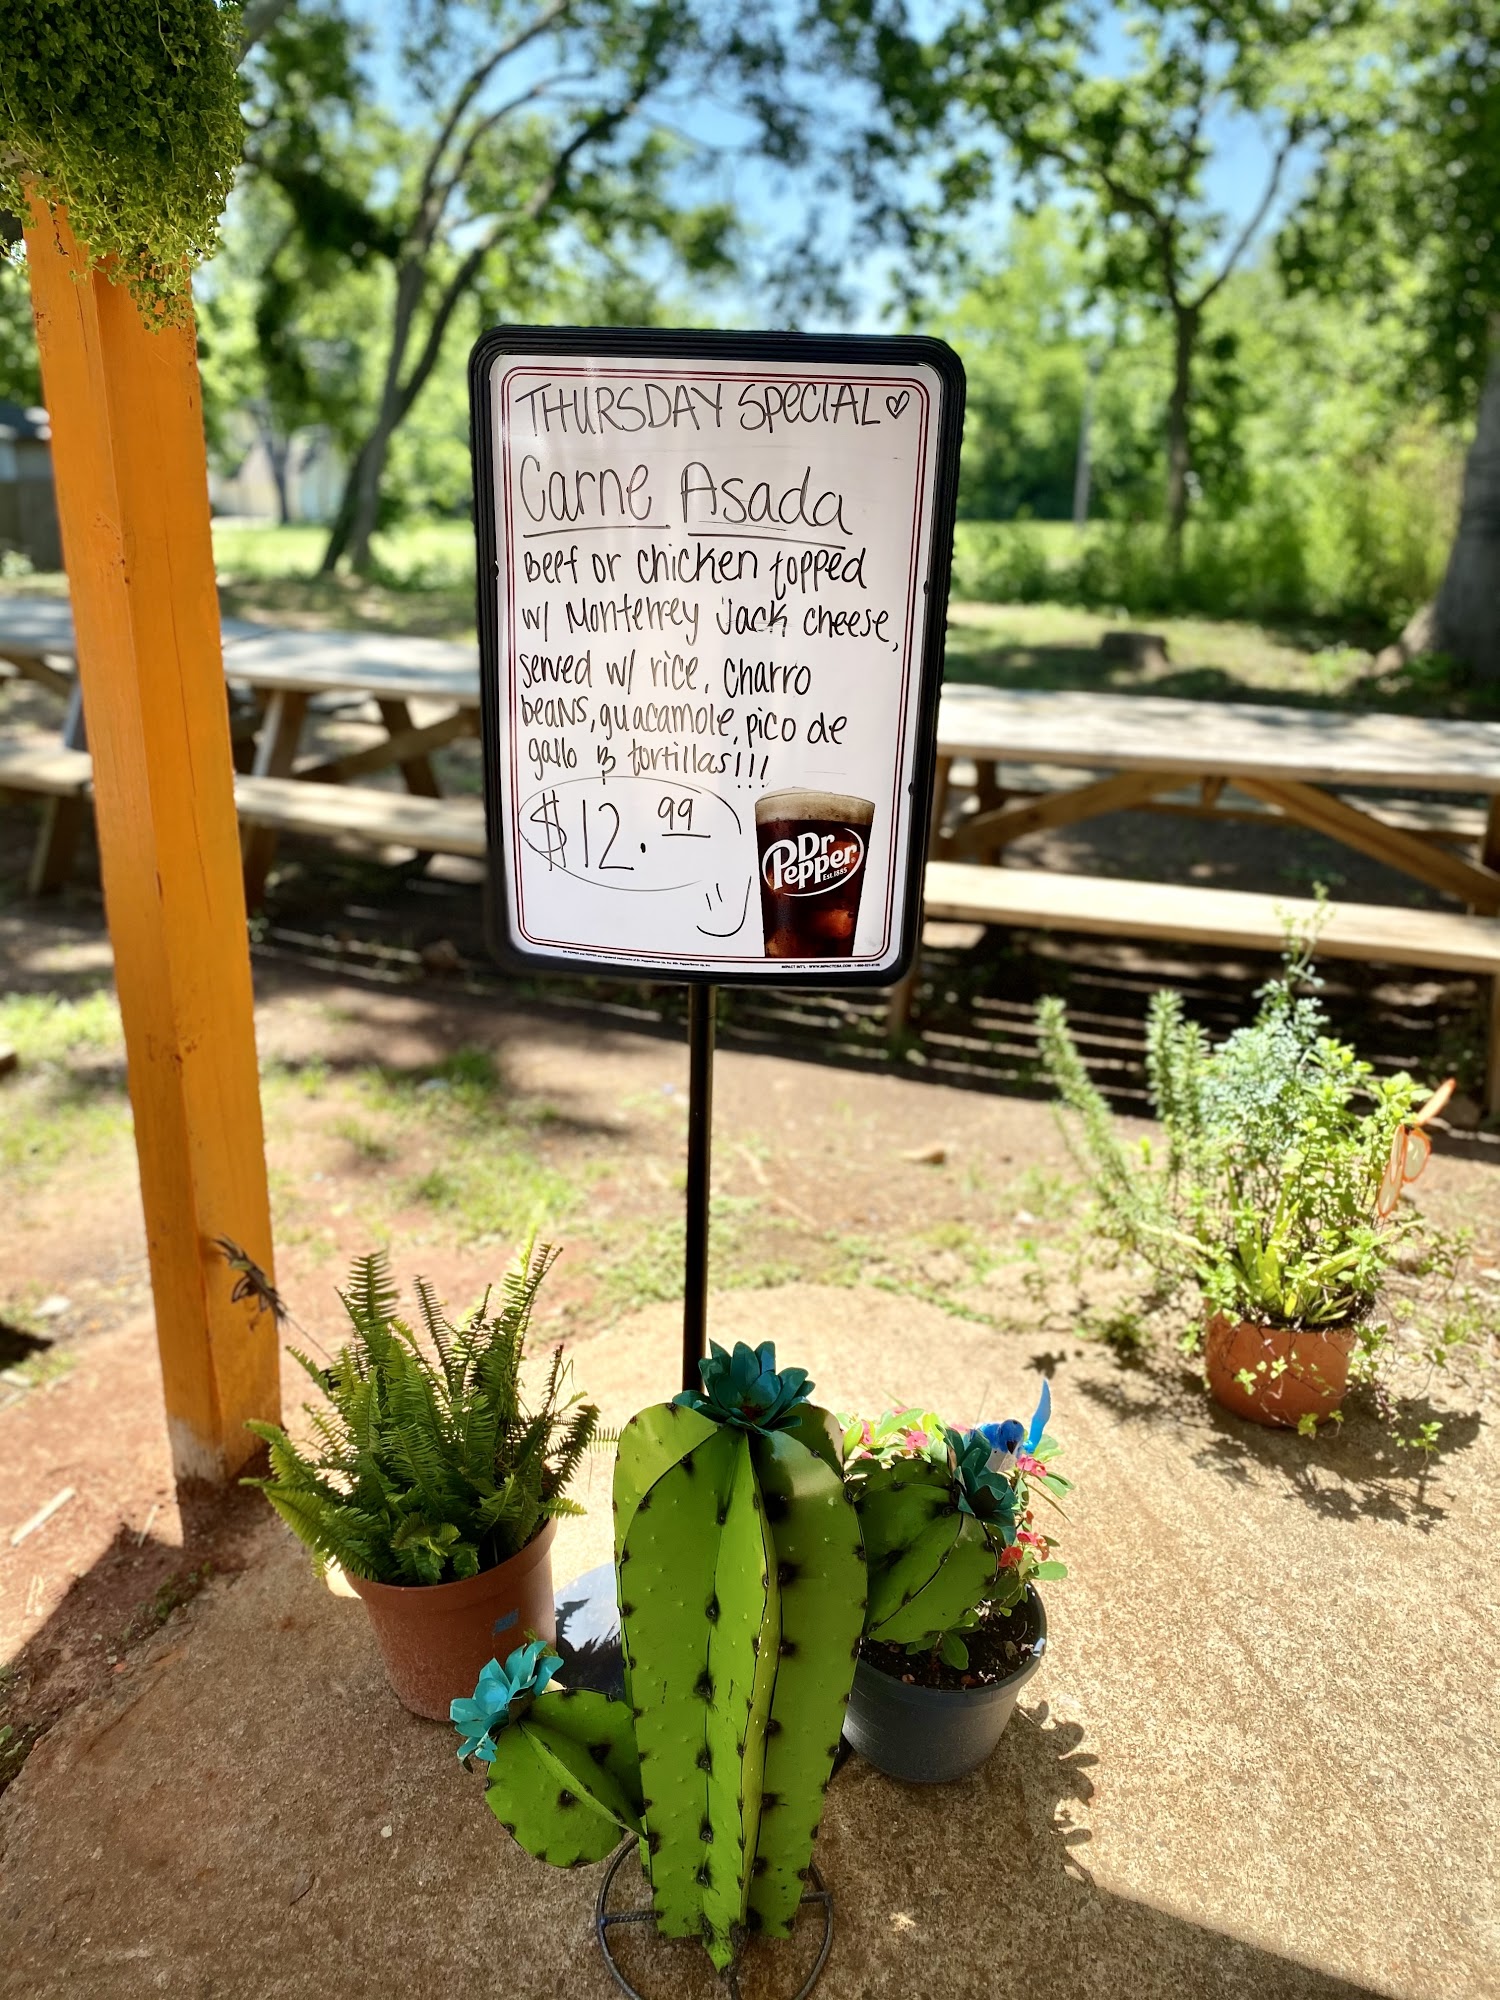 THURSDAY SPECIAL♡
Carne Asada
Beef or chicken topped
w/ Monterrey Jack cheese,
served w/ rice, Charro
beans, guacamole, pico de
gallo & tortillas!!!
$12.99
Dr
Pepper
Est. 1885